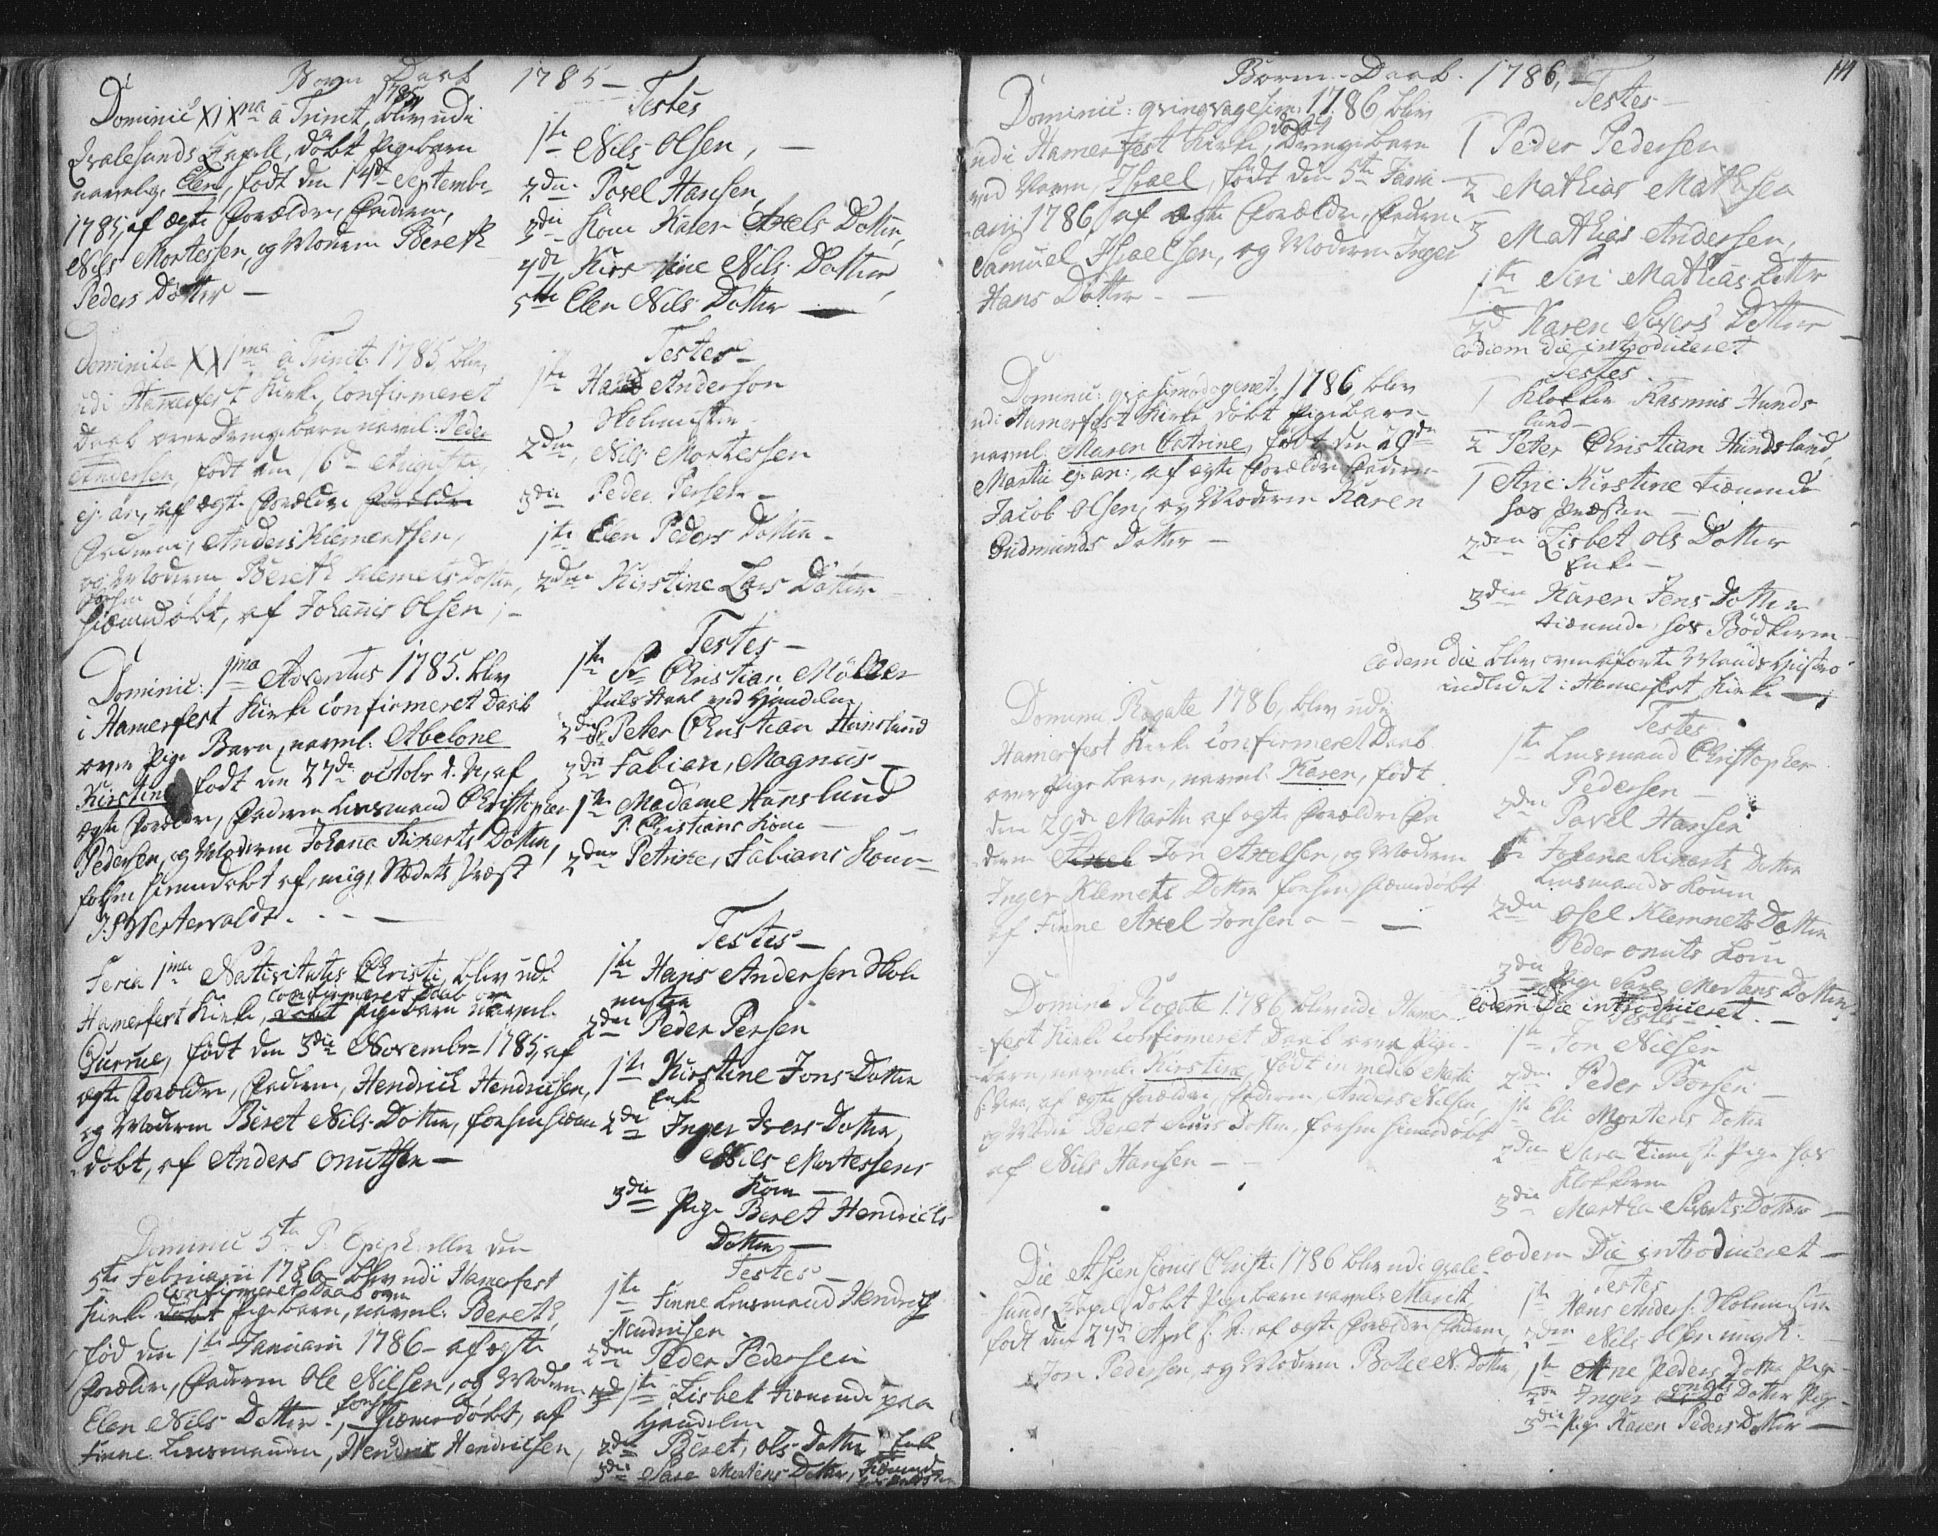 Børn Daab 1785 –
Dominic XIXna à Trinit. 1785, blev udi
Qvalesunds Capell, døbt Pigebarn
navnlig. Elen, født den 14d Septembr.
1785, af ægte Forældre, Faderen,
Nils Mortessen, og Moderen Bereth
Peders Dotter –
Testes
1te Nils Olsen, –
2den Povel Hansen,
3die Kone Karen Axels Dotter,
4de Kirstine Nils Dotter,
5te Elen Nils Dotter –
Dominica XXIma à Trinit. 1785 blev
udi Hamerfest Kirke, Confirmeret
Daab over Drengebarn navnl: Peder
Andersen, født den 16d Augusti,
ej. an, af ægte Forældre
Faderen, Anders Klementsen,
og Moderen Bereth Klemets Dotter,
forhen
hiemedøbt, af Johanis Olsen, –
Testes –
1te Hans Anderson
Holmesten
2den, Nils Mortessen
3die Peder Persen –
1te Elen Peders Dotter –
2den Kirstine Lars Dotter –
Dominic: 1ma Adventus 1785. blev
i Hamerfest Kirke Confirmeret Daab
over Pige Barn, navnl: Abelone
Kirstine, født den 27de octobr. d. A, af
ægte Forældre, Faderen Lensmand Christopher
Pedersen, og Moderen Johana Rikerts Dotter,
forhen hiemedøbt af, mig, Stedets Præst
Westerwaldt. – – –
Testes –
1te Sr Christian Möller
ved Handelen
2den Sr Peter Christian Hunslund
3die Fabian, Magnus –
1te Madame Hunslund
P. Christians Kone –
2den Petrike, Fabians Kone –
Feria 1ma Nativitatis Christi, blev udi
Confirmeret Daab over
Hamerfest Kirke, døbt Pigebarn navnl.
Gurrue, født den 3die Novembr 1785, af
ægte Forældre, Faderen, Hendrich Hendrichsen,
og Moderen Beret Nils Dotter, forhen hieme
døbt, af Anders Onutsen –
Testes –
1te Hans Andersen Skole
mester
2den Peder Persen
1te Kirstine Jons Dotter
Enke
2de Inger Ivers Dotter,
Nils Mortessens
Kone –
3die Pige Beret Hendrichs
Dotter –
Dominic 5te P. Epiph: eller den
5te Februarii 1786 – blev udi Hamerfest
Confirmeret Daab over
Kirke døbt Pigebarn, navnl: Bereth,
fød den 1te Januarii 1786 – af ægte
Forældre, Faderen Ole Nilsen, og Moderen
Elen Nils Dotter –, forhen hiemedøbt, af
Finne Lensmanden, Hendric Hendricsen,
Testes –
1te Finne Lensmand Hendrich
Hendrichsen
2den Peder Pedersen
1te Lisbet tienende paa
Handelen
2den Beret, Ols Dotter Enke
3die Sare Mortens Dotter, tienende
Børne-Daab. 1786, –
Dominic: qvinqvagesim: 1786 blev
døbt
udi Hamerfest Kirke, Drengebarn
ved Navn, Israel, født den 5te Janu-
arij 1786, af ægte Forældre, Faderen
Samuel Israelsen, og Moderen Inger
Hans Dotter – –
Testes –
1 Peder Pedersen
2 Mathias Mathisen
3 Mathias Andersen,
1te Siri Mathias Dotter
2d Karen Sivers Dotter –
eodem die introduceret
Dominic: 1786, blev
udi Hamerfest Kirke døbt Pigebarn
navnl: Maren Catrine, født den 29de
Martii ej: an:, af ægte Forældre Faderen
Jacob Olsen, og Moderen Karen
Gudmunds Dotter –
Testes
1 Klokker Rasmus Hunds
lund –
2 Peter Christian Hundslund
1 Ane Kirstine tienende
hos Præsten –
2den Lisbet Ols Dotter
Enke –
3den Karen Jens Dotter
tienende, hos Bødkeren –
eodem Die blev Mands Hustro
indledet i Hamerfest Kirke –
Dominic Rogate 1786, blev udi
Hamerfest Kirke Confirmeret Daab
over Pigebarn, navnl: Karen, født
den 29de Martii af ægte Forældre Fa
deren Axel Jon Axelsen, og Moderen
Inger Klemets Dotter forhen hiemedøbt
af Finne Axel Jonsen – – –
Testes
1te Lensmand Christopher
Pedersen –
2den Povel Hansen
1te Johana Rikerts Dotter
Lensmands Konen
2den Osel Klemnets Dotter
Peder Onuts Kone
3die Pige Sara Mortens Dotter
eodem Die introduceret. –
Dominic Rogate 1786, blev udi Hamer-
fest Kirke Confirmeret Daab over Pige-
barn, navnl: Kirstine, født in medio Martii
af ægte Forældre, Faderen, Anders Nilsen,
og Moder Beret Dotter, forhen hiemedøbt
af Nils Hansen – –
Testes –
1te Jon Nilsen
2den Peder Borsen –
1te Eli Mortens Dotter
2den Sara Pige hos
Klokkeren
3die Martha Siverts Dotter –
eodem Die introduceret –
Die Ascensionis Christi 1786 blev udi Qvale-
sunds Capel døbt Pigebarn navnl. Marit
født den 27de Apel af ægte Forældre Faderen,
Jon Pedersen, og Moderen Bolle N. Dotter,
Testes
1te Hans Anders: Skolemester
2den Nils Olsen ung K. –
1te Ane Peders Dotter Pige
2de Inger Onuts Dotter Pige –
3die Pige Karen Peders Dotter –